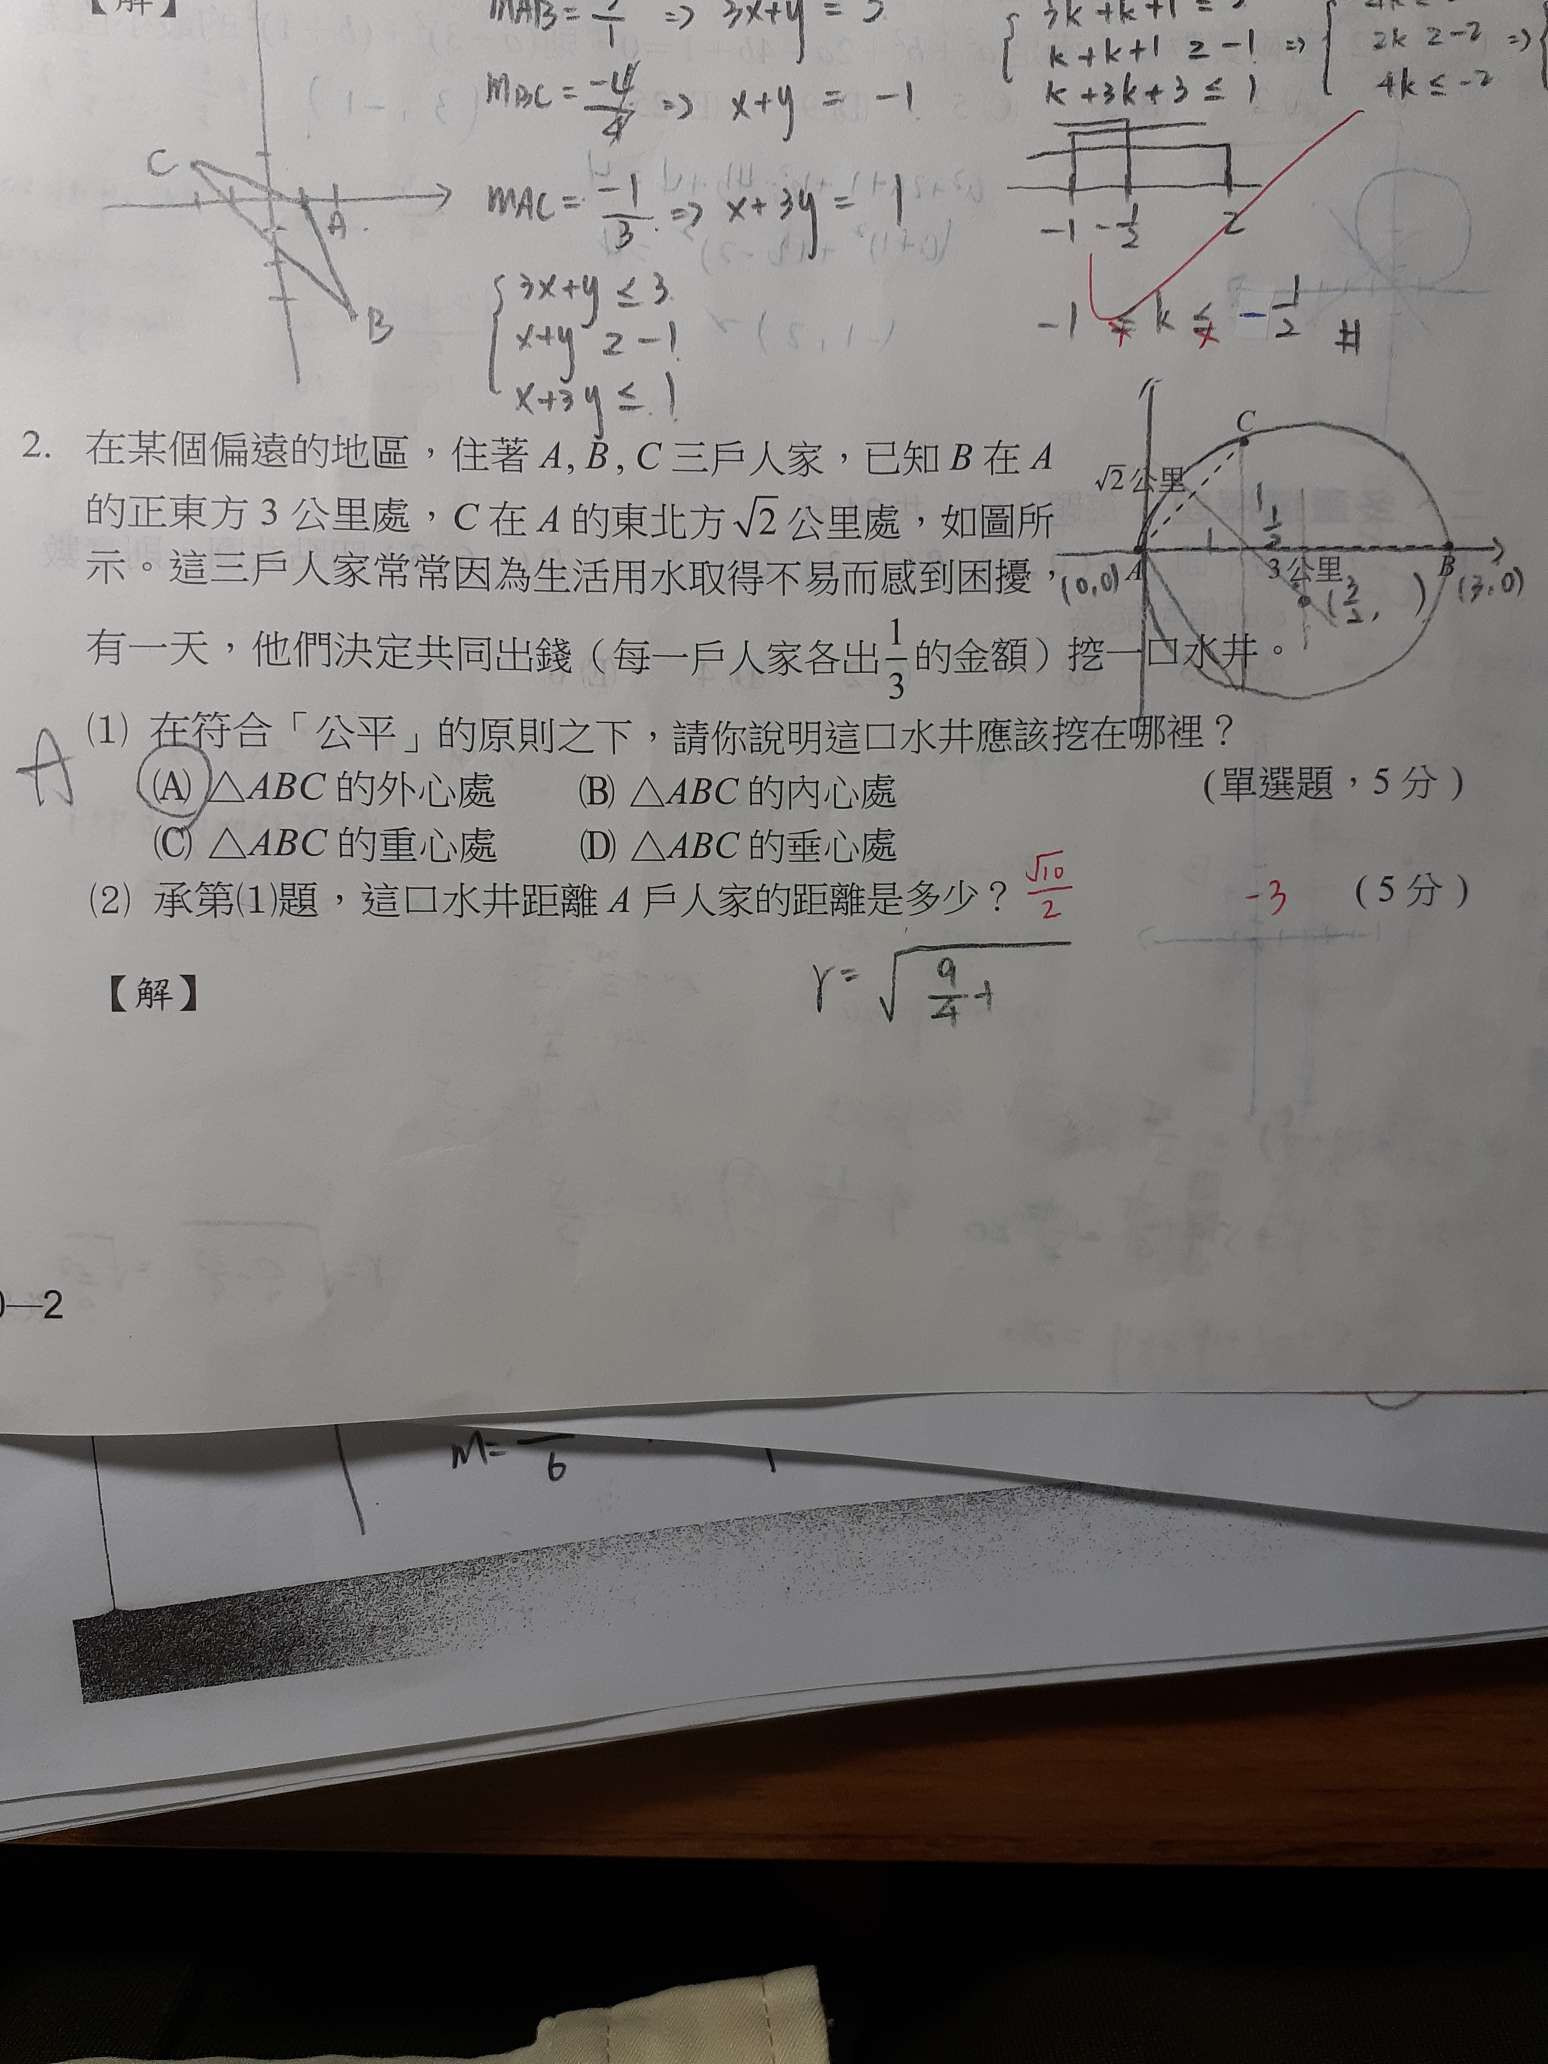 【解】
mAB = ⇒ 3x+y = 3
mBC = -4/4 ⇒ x+y = -1
mAC = -1/3 ⇒ x+3y = 1
3x+y ≤ 3
x+y ≥ -1
x+3y ≤ 1
k+k+1 ≥ -1 ⇒ 2k ≥ -2 ⇒
k+3k+3 ≤ 1 4k ≤ -2
-1 -1/2 2
-1 ≤ k ≤ -1/2 #
C
A
B
2. 在某個偏遠的地區，住著 A, B, C 三戶人家，已知 B 在 A
的正東方 3 公里處，C 在 A 的東北方 √2 公里處，如圖所
示。這三戶人家常常因為生活用水取得不易而感到困擾，
有一天，他們決定共同出錢（每一戶人家各出 1/3 的金額）挖一口水井。
C
√2 公里
1
1 1/2
(0,0) A 3 公里 B (3,0)
(3/2, )
A
⑴ 在符合「公平」的原則之下，請你說明這口水井應該挖在哪裡？
(A) △ABC 的外心處 (B) △ABC 的內心處 (單選題，5 分)
(C) △ABC 的重心處 (D) △ABC 的垂心處
⑵ 承第⑴題，這口水井距離 A 戶人家的距離是多少？ √10/2 -3 (5 分)
【解】
r = √9/4+
—2
m= 6